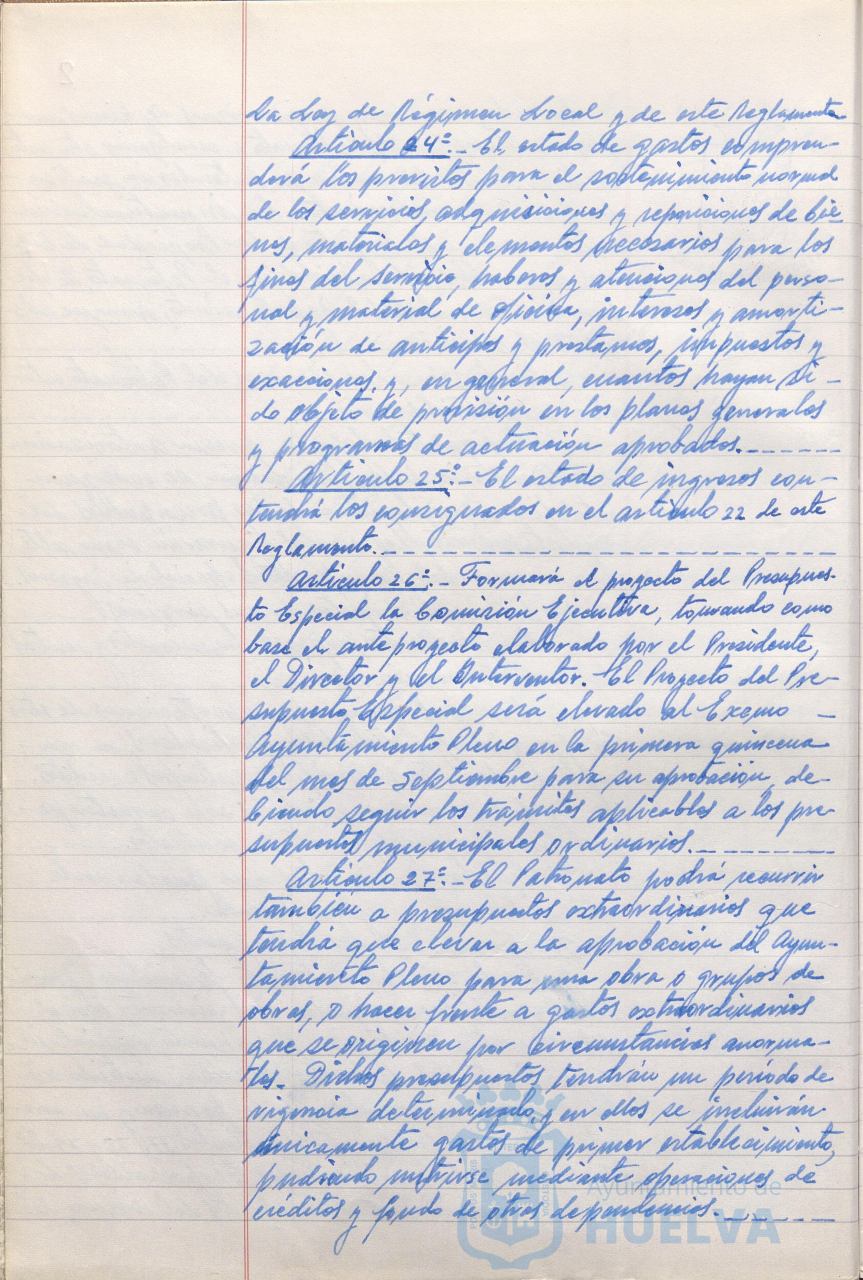 La Ley de Régimen Local y de este Reglamento
Artículo 24º.- El estado de gastos compren-
derá los previstos para el sostenimiento normal
de los servicios, adquisiciones y reposiciones de bie-
nes, materiales y elementos necesarios para los
fines del servicio, haberes y atenciones del perso-
nal y material de oficina, intereses y amorti-
zación de anticipos y prestamos, impuestos y
exacciones, y, en general, cuantos hayan si-
do objeto de previsión en los planes generales
y programas de actuación aprobados.-------
Artículo 25º.- El estado de ingresos con-
tendrá los consignados en el artículo 22 de este
Reglamento.------------------------------
Artículo 26º.- Formará el proyecto del Presupues-
to Especial la Comisión Ejecutiva, tomando como
base el anteproyecto elaborado por el Presidente,
el Director y el Interventor. El Proyecto del Pre-
supuesto Especial será elevado al Excmo -
Ayuntamiento Pleno en la primera quincena
del mes de Septiembre para su aprobación, de-
biendo seguir los trámites aplicables a los pre-
supuestos municipales ordinarios.---------
Artículo 27º.- El Patronato podrá recurrir
también a presupuestos extraordinarios que
tendrá que elevar a la aprobación del Ayun-
tamiento Pleno para una obra o grupos de
obras, o hacer frente a gastos extraordinarios
que se originen por circunstancias anorma-
les.- Dichos presupuestos tendrán un período de
vigencia determinado, y en ellos se incluirán
únicamente gastos de primer establecimiento,
pudiendo nutrirse mediante operaciones de
créditos y fondo de otras dependencias.-------
Ayuntamiento de
HUELVA